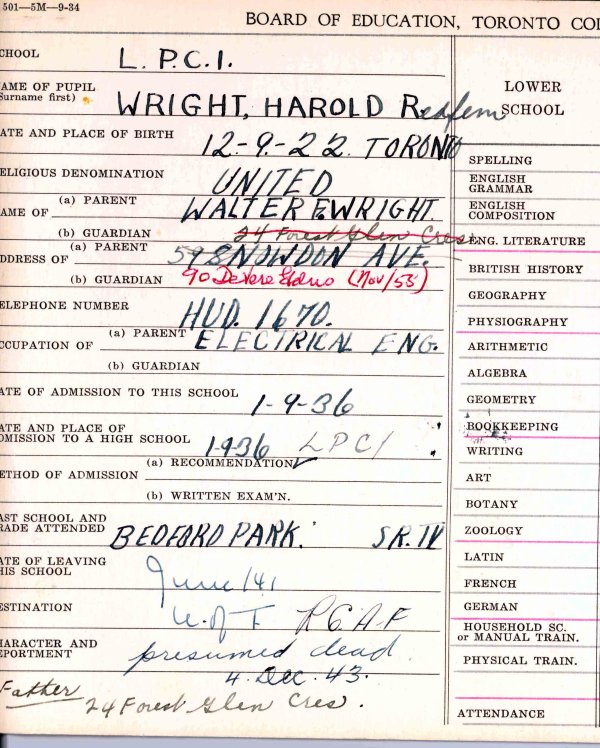 501—5M—9-34
BOARD OF EDUCATION, TORONTO COL
CHOOL L. P.C.I.
AME OF PUPIL
Surname first) WRIGHT, HAROLD Redfern
ATE AND PLACE OF BIRTH 12-9-22 TORONTO
ELIGIOUS DENOMINATION UNITED
AME OF (a) PARENT WALTER F. WRIGHT.
(b) GUARDIAN 24 Forest Glen Cres.
DDRESS OF (a) PARENT 59 SNOWDON AVE.
(b) GUARDIAN 90 DeVere Gdns (Nov/55)
ELEPHONE NUMBER HUD. 1670.
CCUPATION OF (a) PARENT ELECTRICAL ENG.
(b) GUARDIAN
ATE OF ADMISSION TO THIS SCHOOL 1-9-36
ATE AND PLACE OF
DMISSION TO A HIGH SCHOOL 1-9-36 LPCI
ETHOD OF ADMISSION (a) RECOMMENDATION ✓
(b) WRITTEN EXAM'N.
AST SCHOOL AND
RADE ATTENDED BEDFORD PARK. SR. IV
ATE OF LEAVING
HIS SCHOOL June /41
ESTINATION U. of T. RCAF
HARACTER AND
EPORTMENT presumed dead
4. Dec. 43.
Father 24 Forest Glen Cres.
LOWER
SCHOOL
SPELLING
ENGLISH
GRAMMAR
ENGLISH
COMPOSITION
ENG. LITERATURE
BRITISH HISTORY
GEOGRAPHY
PHYSIOGRAPHY
ARITHMETIC
ALGEBRA
GEOMETRY
BOOKKEEPING
WRITING
ART
BOTANY
ZOOLOGY
LATIN
FRENCH
GERMAN
HOUSEHOLD SC.
or MANUAL TRAIN.
PHYSICAL TRAIN.
ATTENDANCE